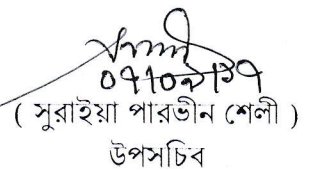 ০৭।০৯।১৭
( সুরাইয়া পারভীন শেলী )
উপসচিব